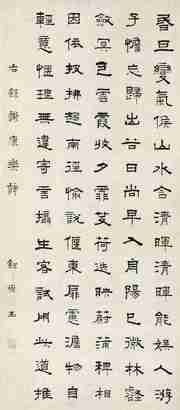 昏旦變氣候山水含清暉清暉能娛人游
子憺忘歸出谷日尚早入舟陽已微林壑
斂冥色雲霞收夕霏芰荷迭映蔚蒲稗相
因依披拂趨南徑愉悅偃東扉慮澹物自
輕意愜理無違寄言攝生客試用此道推
右錄謝康樂詩 鈕樹玉